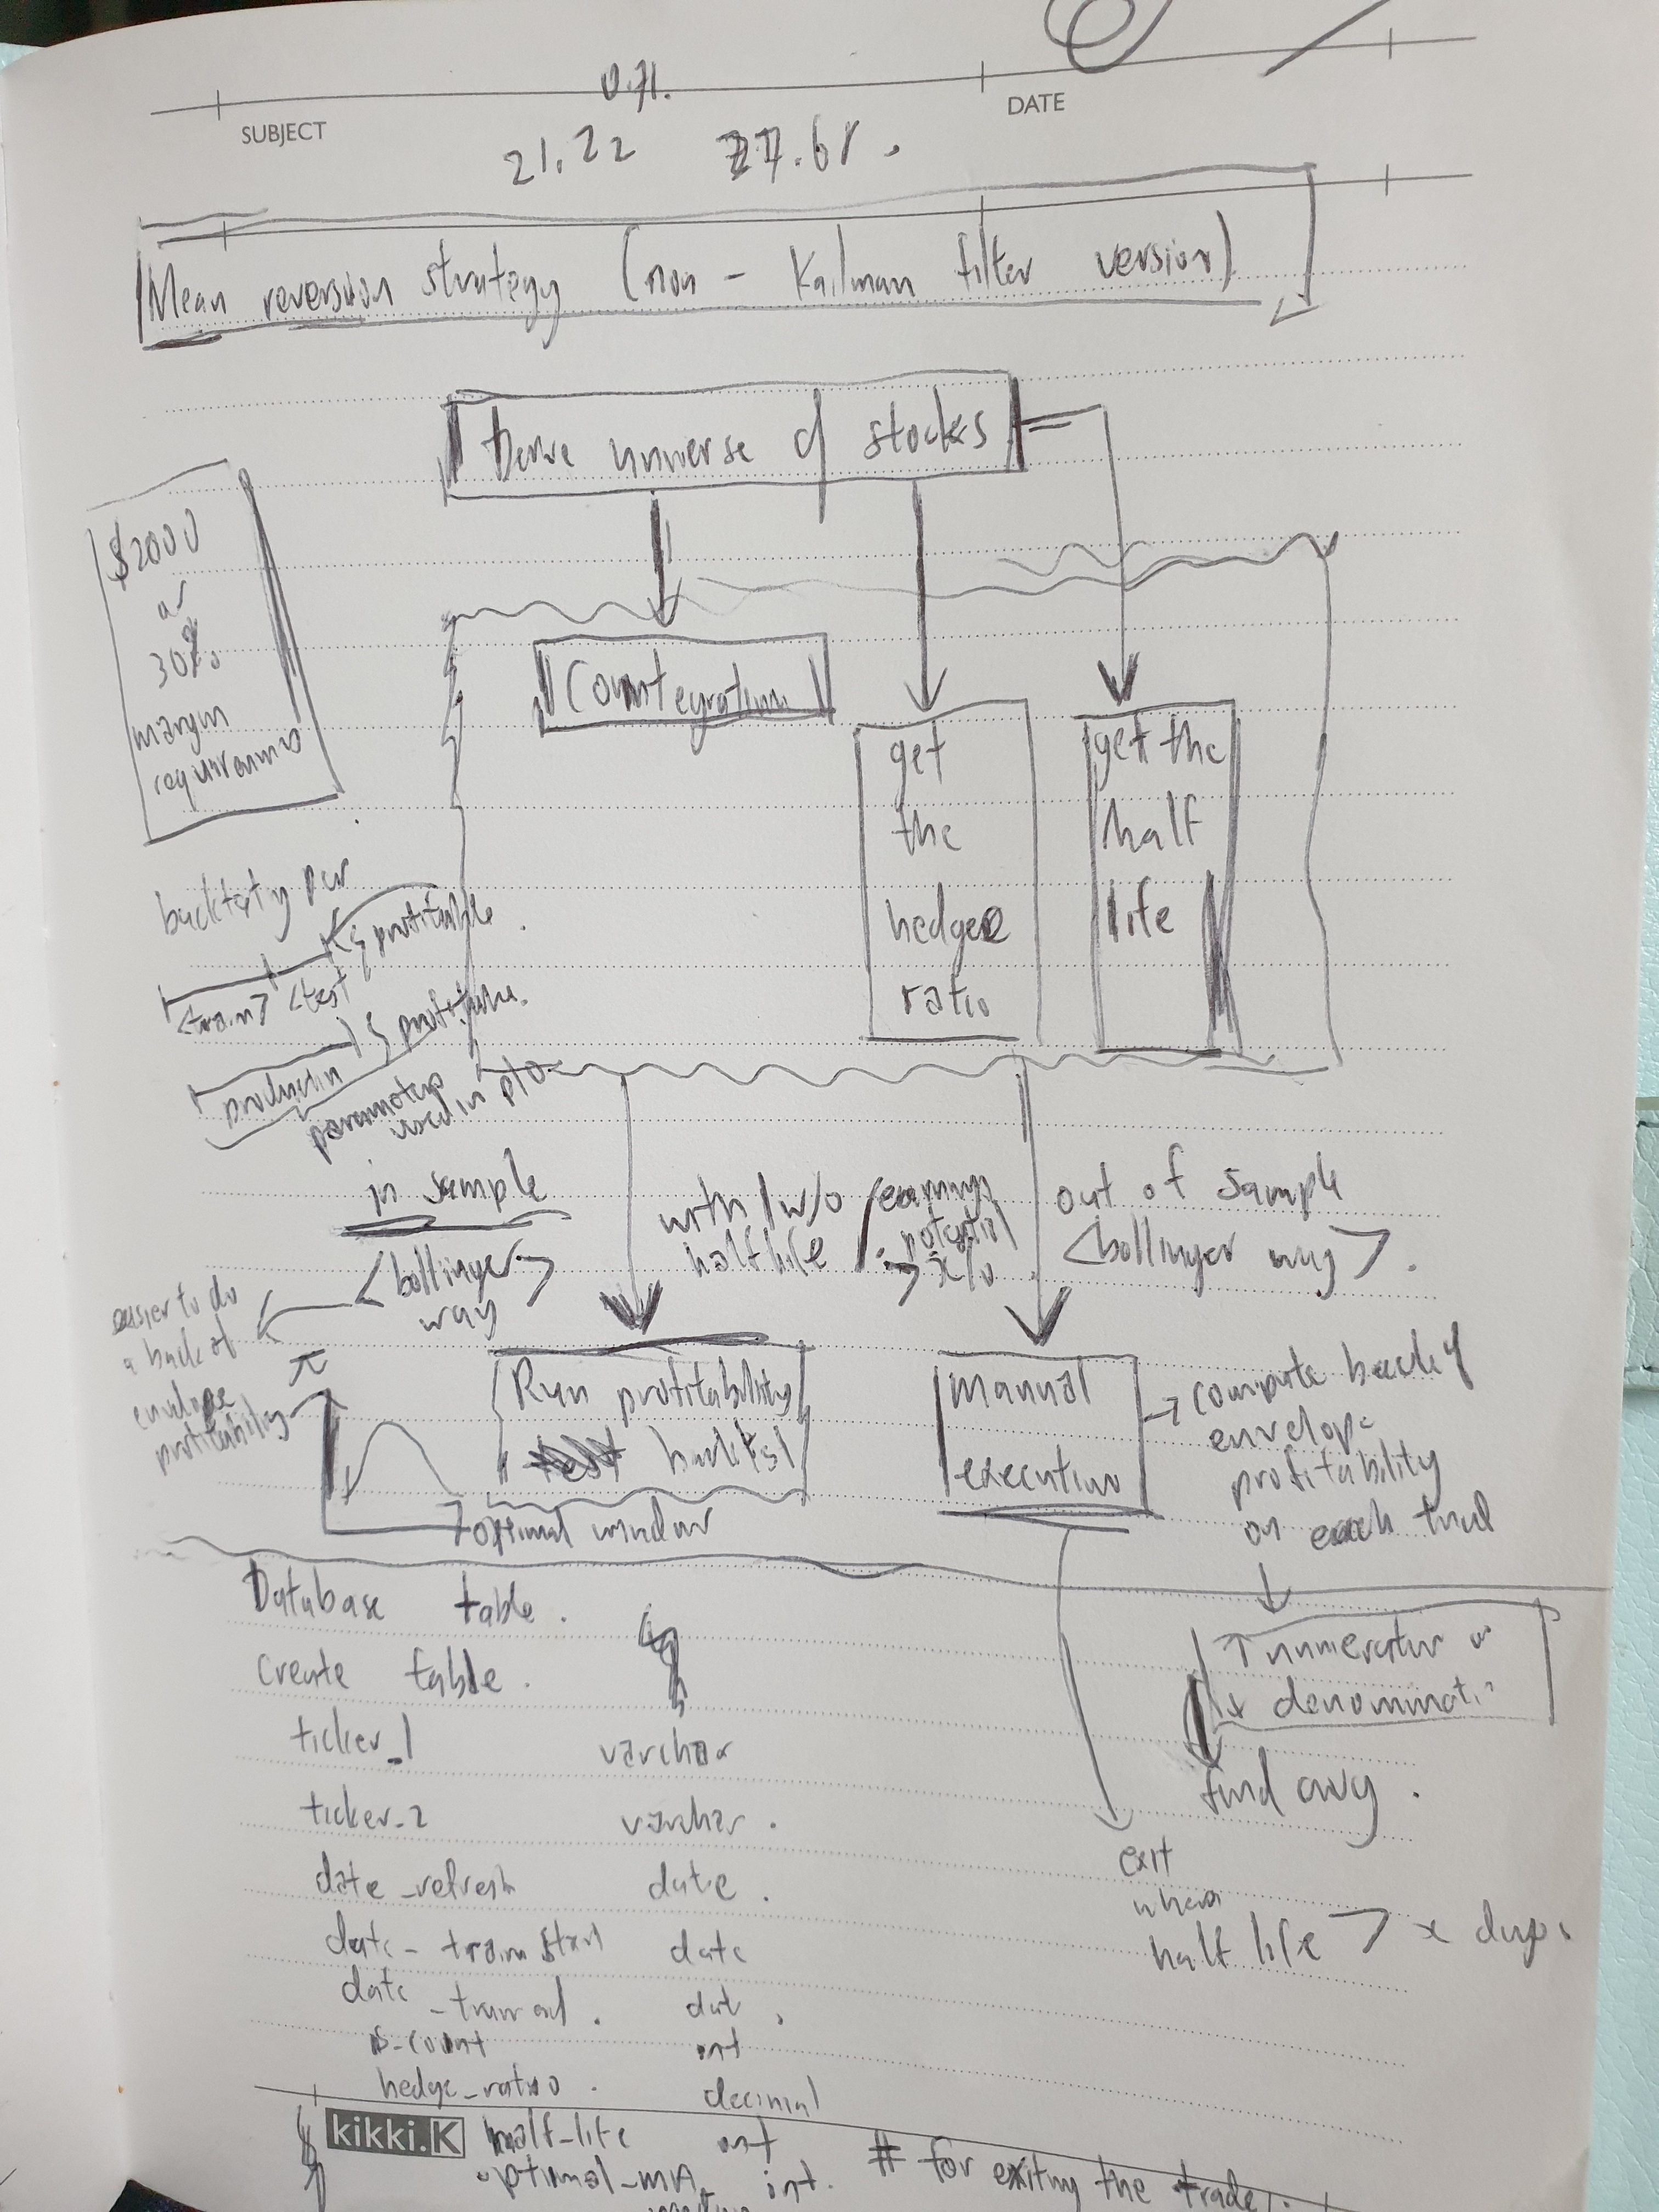 0.71.
SUBJECT
DATE
21.22
Mean reversion strategy (non - Kailman filter version)
Derive universe of stocks
$2000
or
30%
margin
requirements
Cointegration
get
the
hedge
ratio
get the
half
life
profitable
<train> <test
profitable.
production
parameters
used in
in sample
<bollinger>
way
with / w/o
half life
earnings
potential
x%
out of sample
<bollinger way>.
easier to do
a back of
envelope
profitability
Run profitability
backtest
optimal window
manual
execution
compute back of
envelope
profitability
on each
↑ numerator or
↓ denominator
find avg.
exit
when
half life > x days
Database table.
Create table.
ticker_1 varchar
ticker_2 varchar.
date_refresh date.
date_train start date
date_train end. date.
int
hedge_ratio. decimal
kikki.K
half_life int
optimal_MA int.
# for exiting the trade